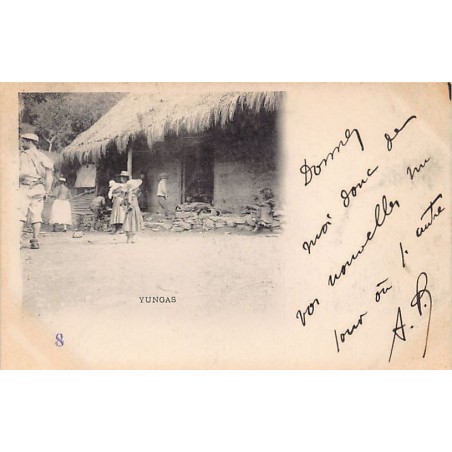 YUNGAS
8
Donnez
moi donc de
vos nouvelles un
jour où l'autre
A. P.